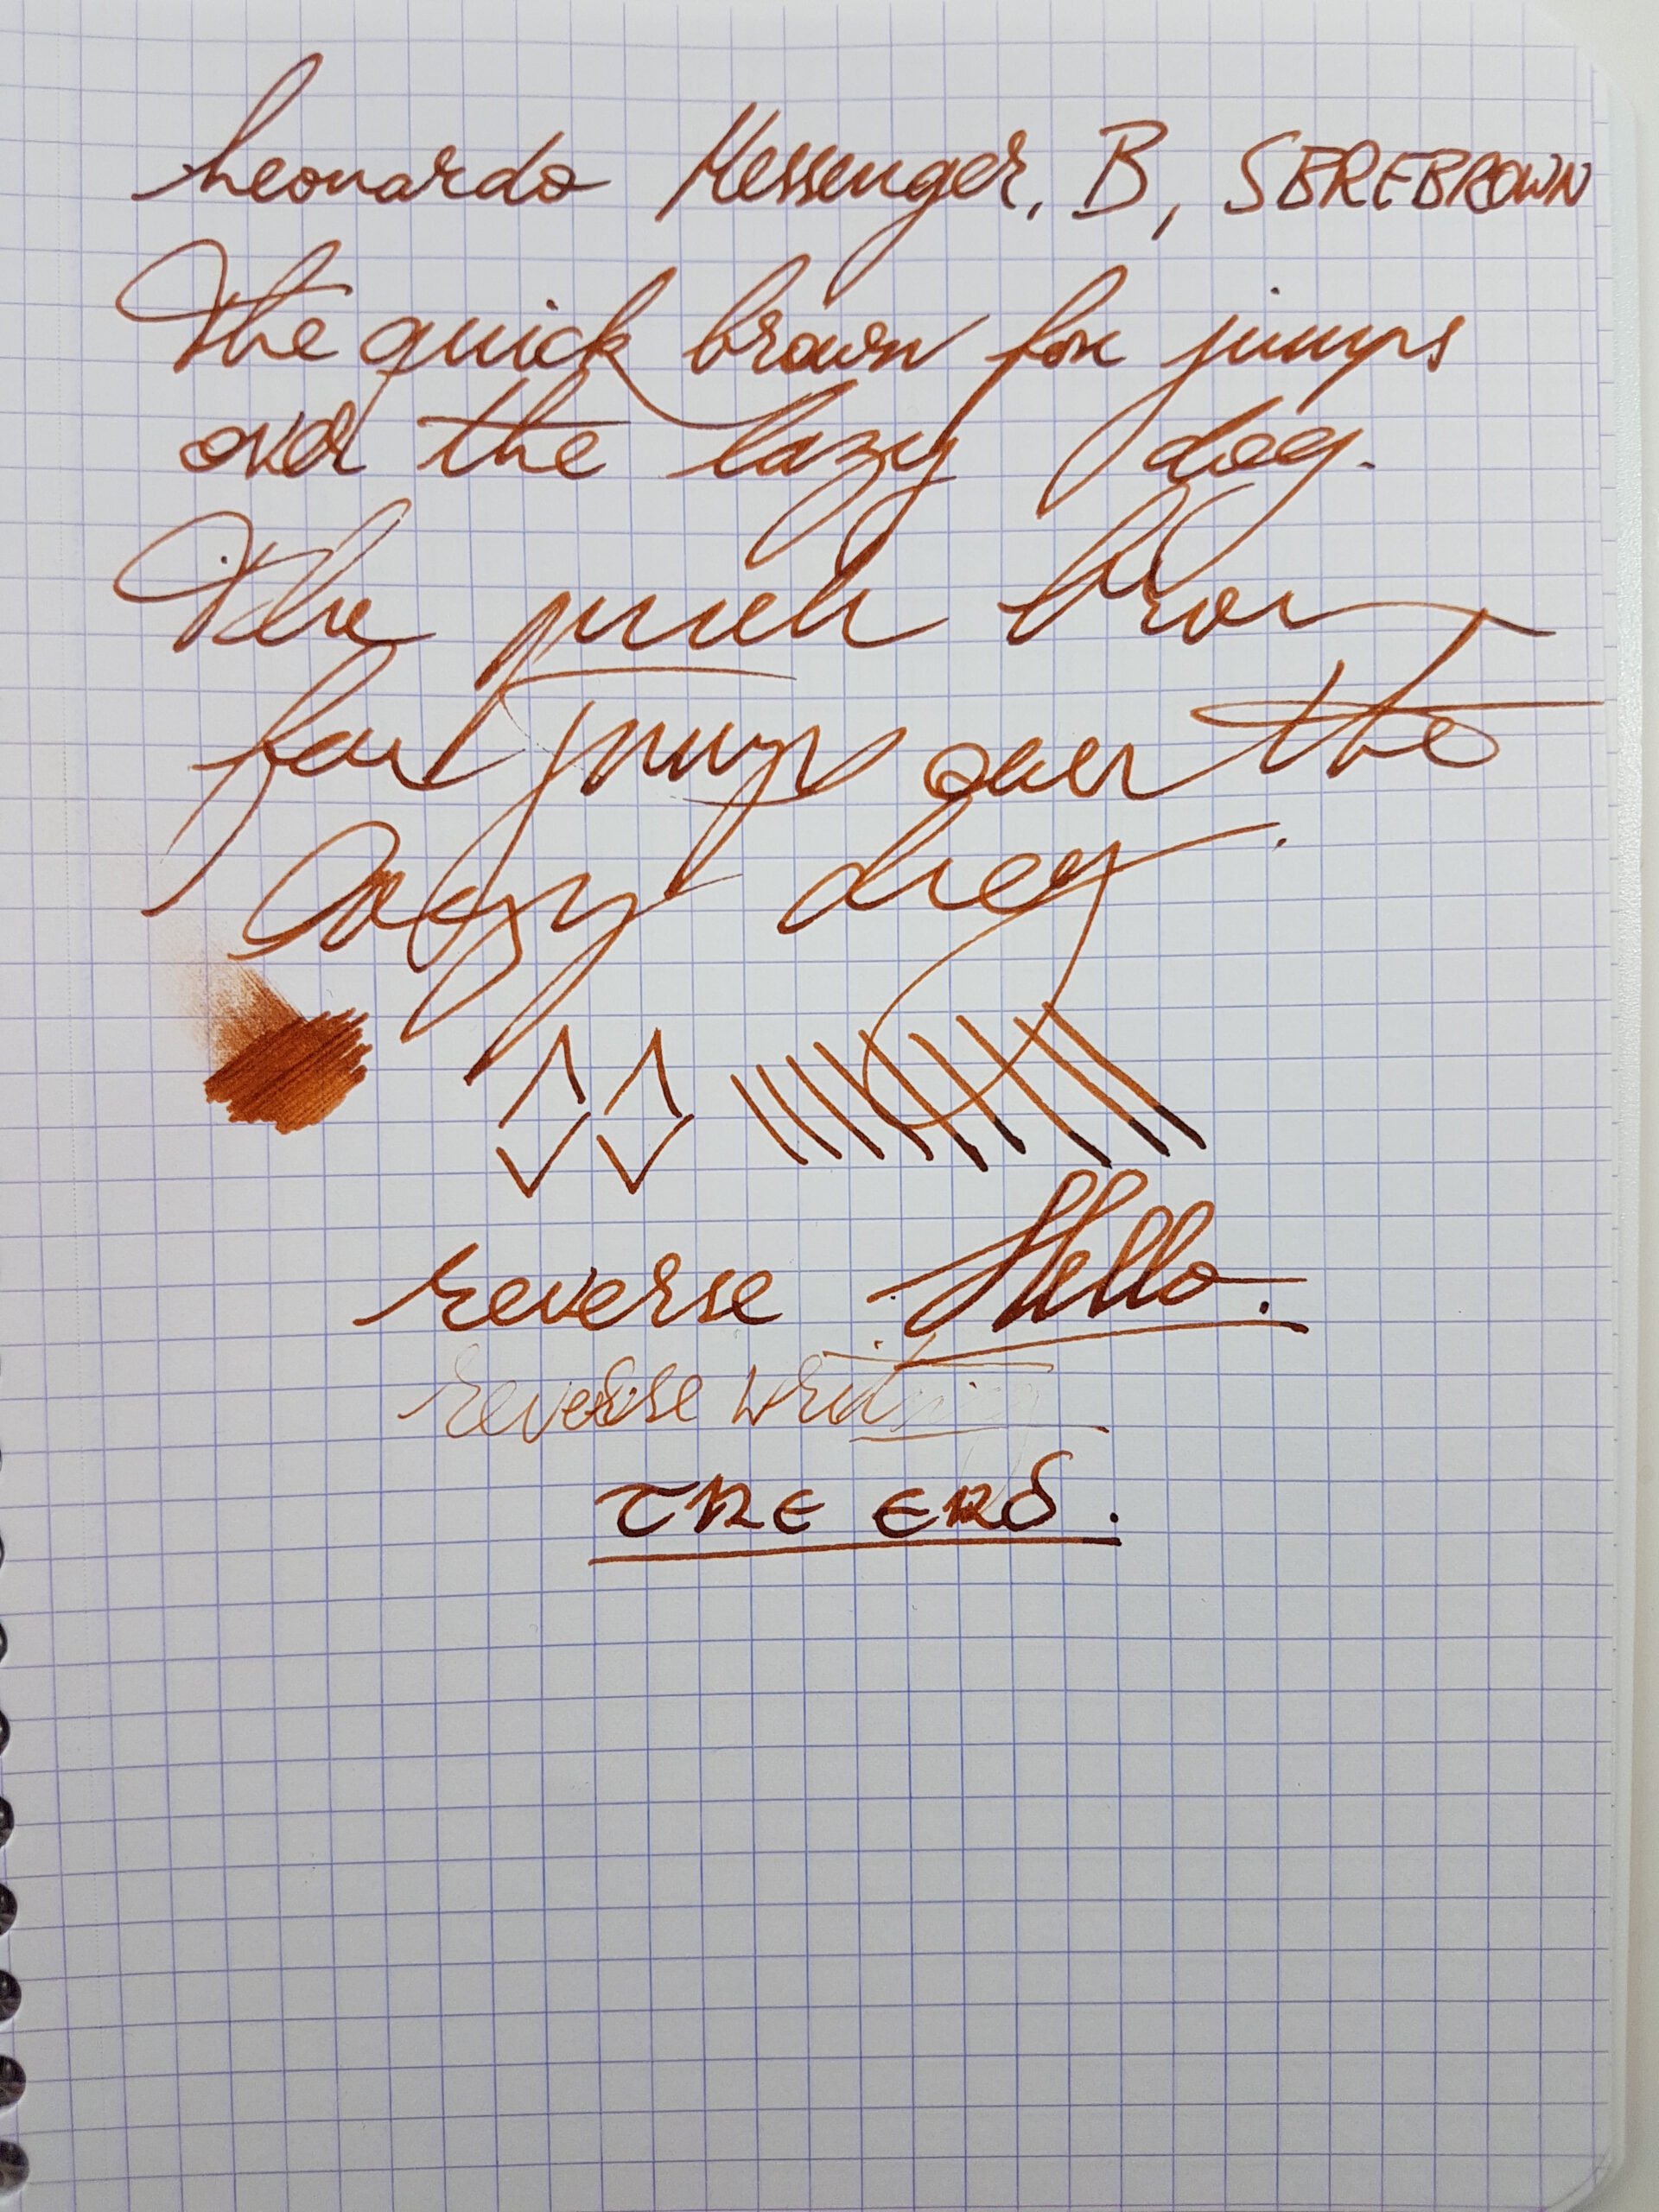 Leonardo Messenger, B, SBREBROWN
The quick brown fox jumps
over the lazy dog.
The quick brown
fox jumps over the
lazy dog.
reverse Hello.
reverse writing
THE END.